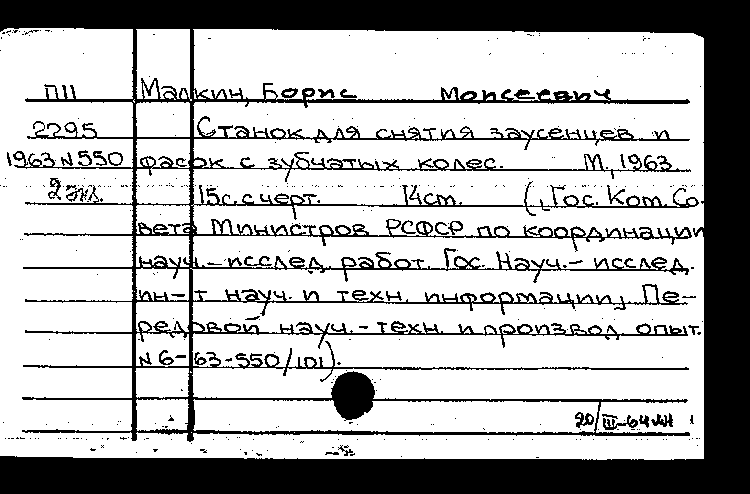 П11 Малкин, Борис Моисеевич
2295 Станок для снятия заусенцев и
1963 N550 фасок с зубчатых колес. М., 1963
2 эк. 15с. с черт. 14см. (Гос. Ком. Со-
вета Министров РСФСР по координации
науч.-исслед. работ. Гос. Науч.-исслед.
ин-т науч. и техн. информации, Пе-
редовой науч.-техн. и производ. опыт.
N6-63-550/101).
20/III-64